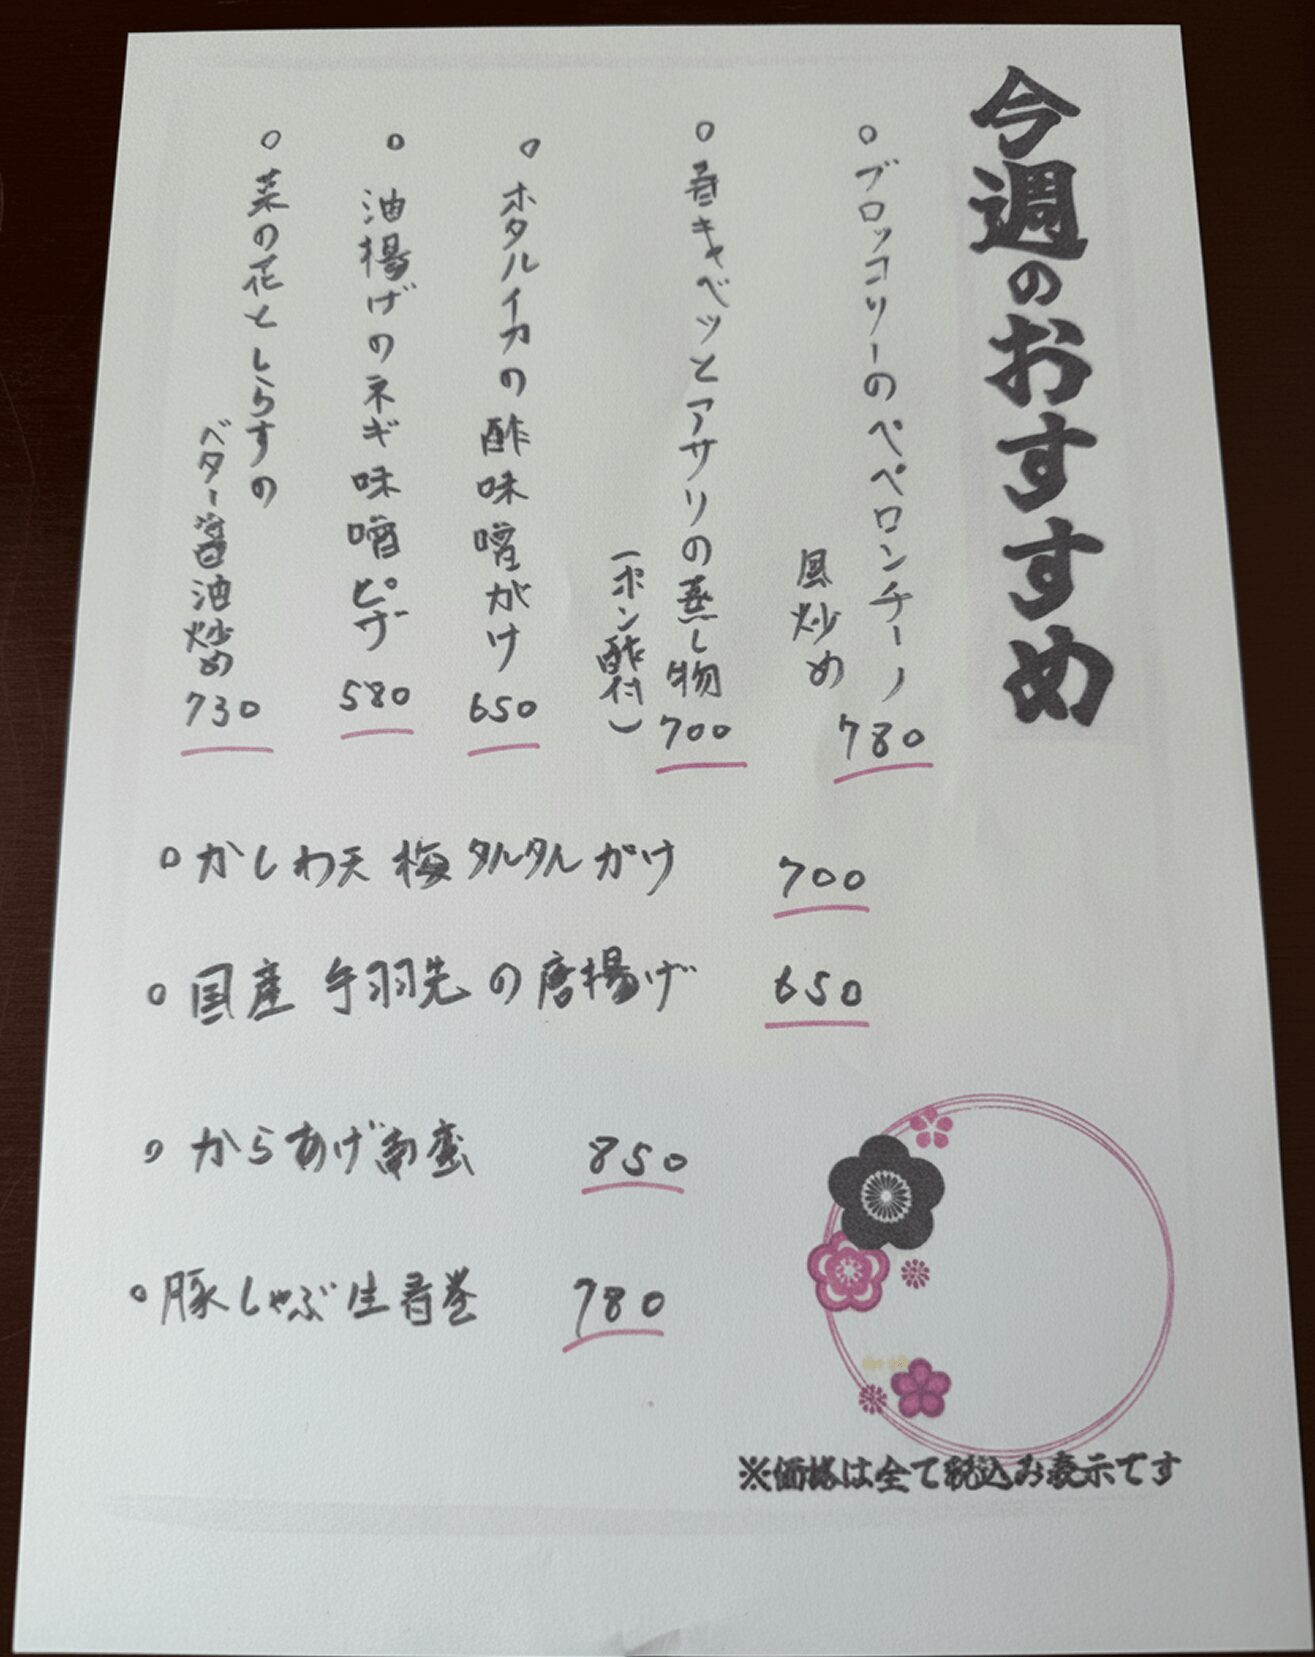 今週のおすすめ
○ブロッコリーのペペロンチーノ
風炒め
780
○春キャベツとアサリの蒸し物
(ポン酢付)
700
○ホタルイカの酢味噌がけ
650
○油揚げのネギ味噌ピザ
580
○菜の花としらすの
バター醤油炒め
730
○かしわ天 梅タルタルがけ 700
○国産 手羽先の唐揚げ 650
○からあげ南蛮 850
○豚しゃぶ生春巻 780
※価格は全て税込み表示です